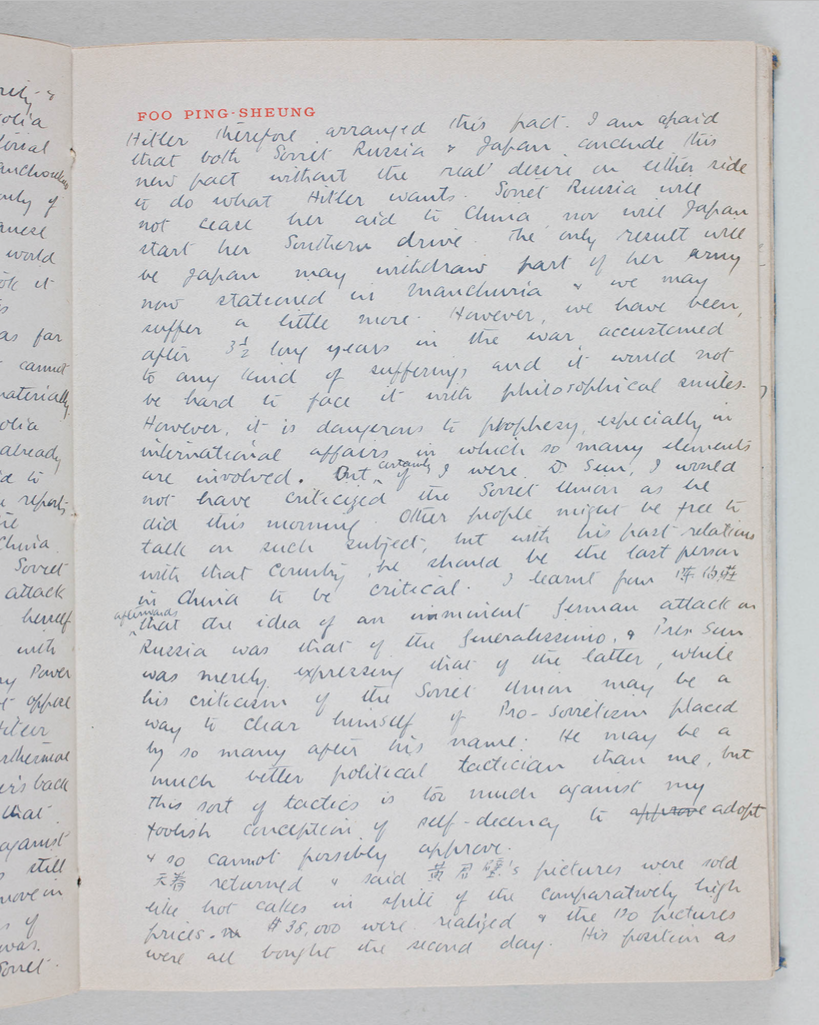 FOO PING-SHEUNG
Hitler therefore arranged this pact. I am afraid
that both Soviet Russia & Japan conclude this
new pact without the real desire on either side
to do what Hitler wants. Soviet Russia will
not cease her aid to China nor will Japan
start her Southern drive. The only result will
be Japan may withdraw part of her army
now stationed in Manchuria & we may
suffer a little more. However, we have been,
after 3½ long years in the war accustomed
to any kind of sufferings and it would not
be hard to face it with philosophical smiles.
However, it is dangerous to phophesy, especially in
international affairs in which so many elements
are involved. But certainly if I were Dr Sun, I would
not have criticized the Soviet Union as he
did this morning. Other people might be free to
talk on such subject, but with his past relations
with that country, he should be the last person
in China to be critical. I learnt from
afterwards that the idea of an imminent German attack on
Russia was that of the Generalissimo, & Pres. Sun
was merely expressing that of the latter, while
his criticism of the Soviet Union may be a
way to clear himself of Pro-Sovietism placed
by so many after his name. He may be a
much better political tactician than me, but
this sort of tactics is too much against my
foolish conception of self-decency to approve adopt
& so cannot possibly approve.
天春 returned & said 黃君璧's pictures were sold
like hot cakes in spite of the comparatively high
prices. $38,000 were realized & the 130 pictures
were all bought the second day. His position as
rely &
olia
torial
anchoukuo
only of
anese
world
ok it
as far
cannot
materially
olia
already
id to
reports
China.
Soviet
attack
herself
with
ny Power
oppose
Hitler
urthermore
er's back
that
against
still
move in
of
was.
Soviet.